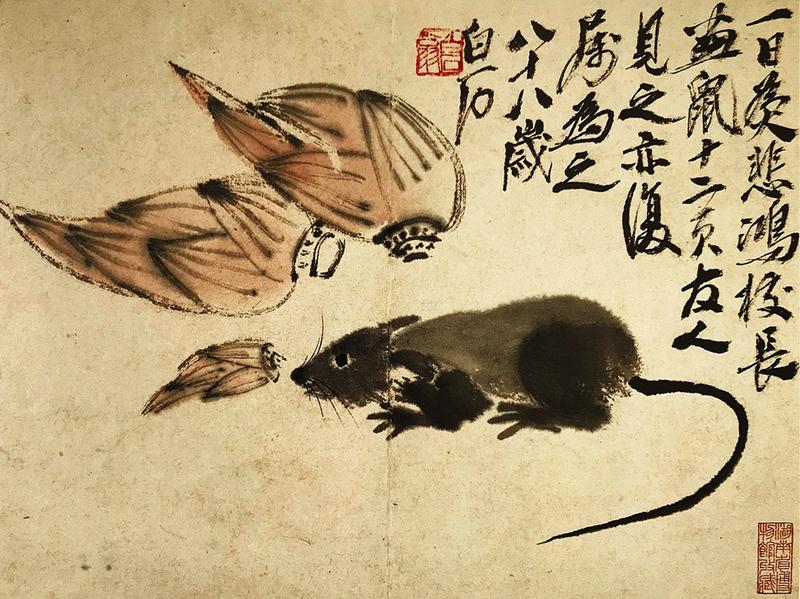 一日爲悲鴻校長
畫鼠十二頁友人
見之亦復
属為之
八十八歲
白石